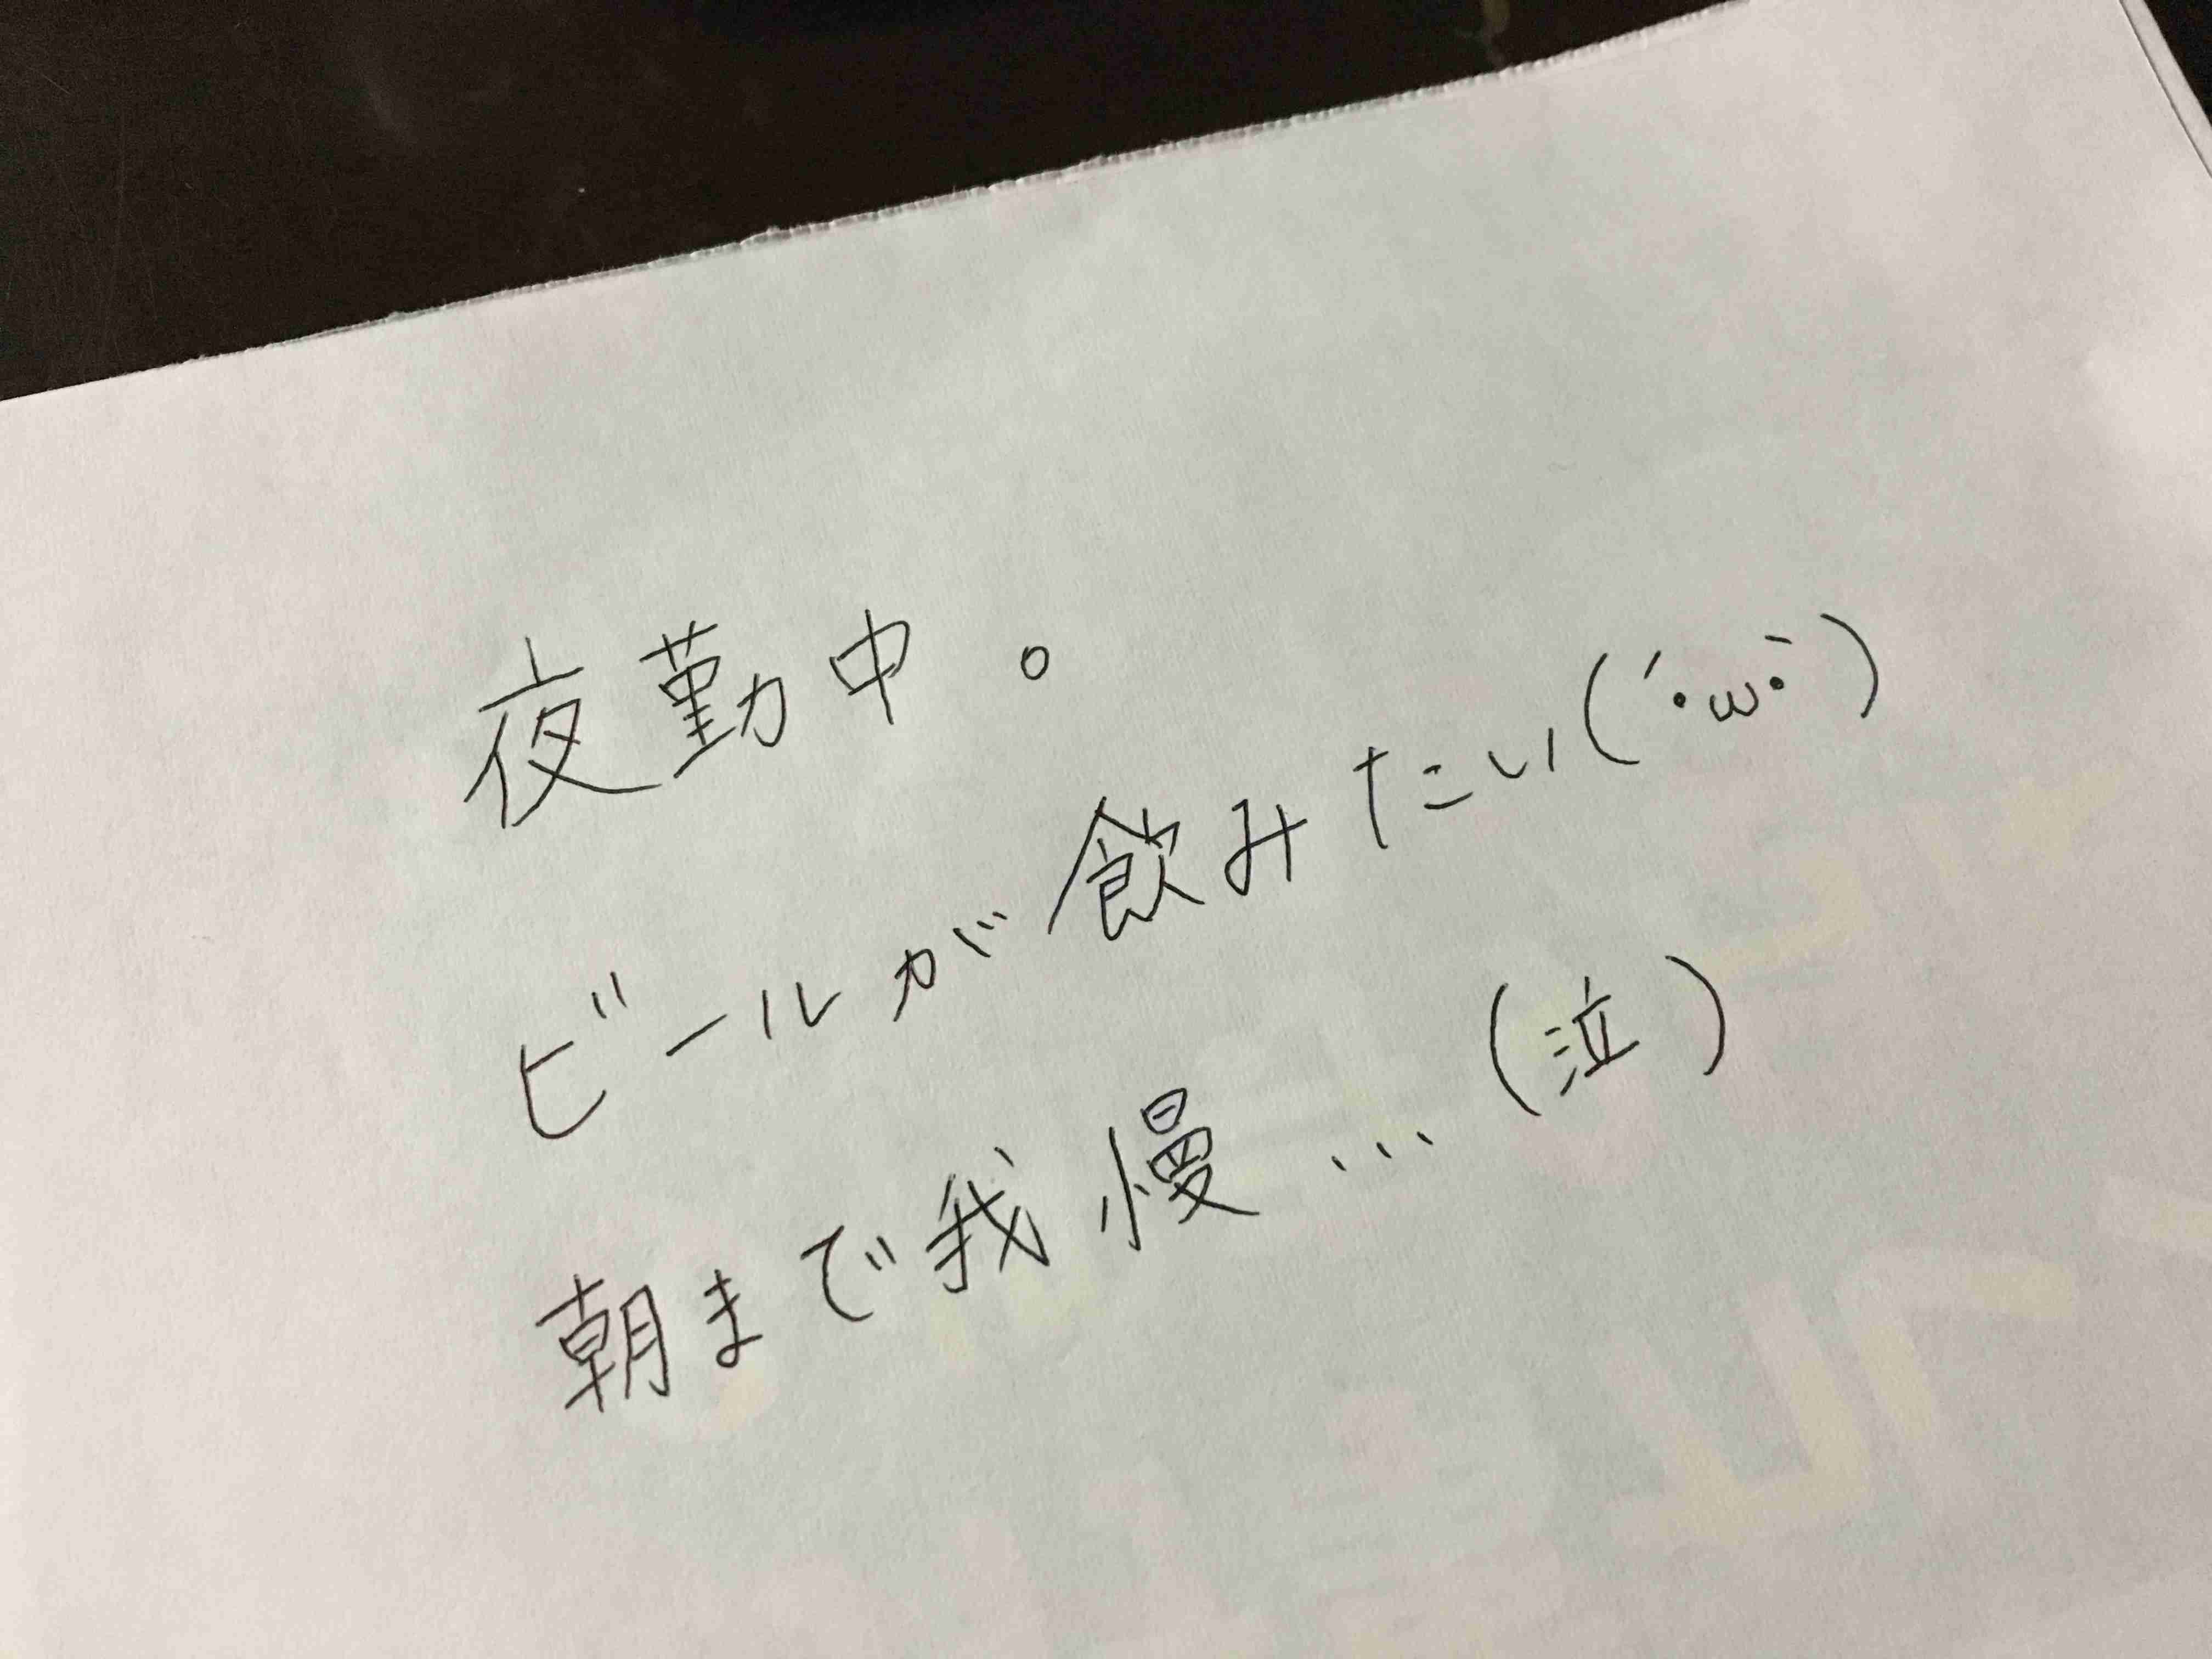 夜勤中。
ビールが飲みたい(´•ω•`)
朝まで我慢…(泣)